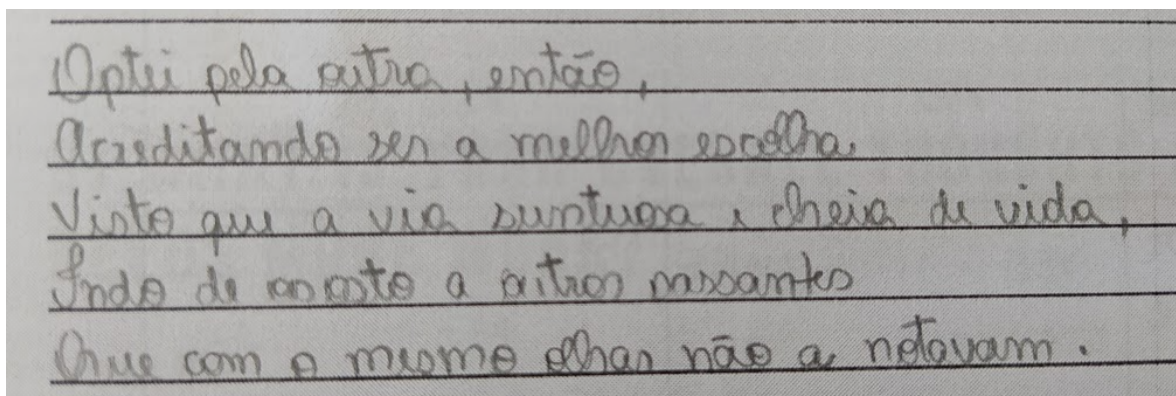 Optei pela outra, então,
Acreditando ser a melhor escolha
Visto que a via suntuosa e cheia de vida,
Indo de oposto a outros passantes
Que com o mesmo olhar não a notavam.